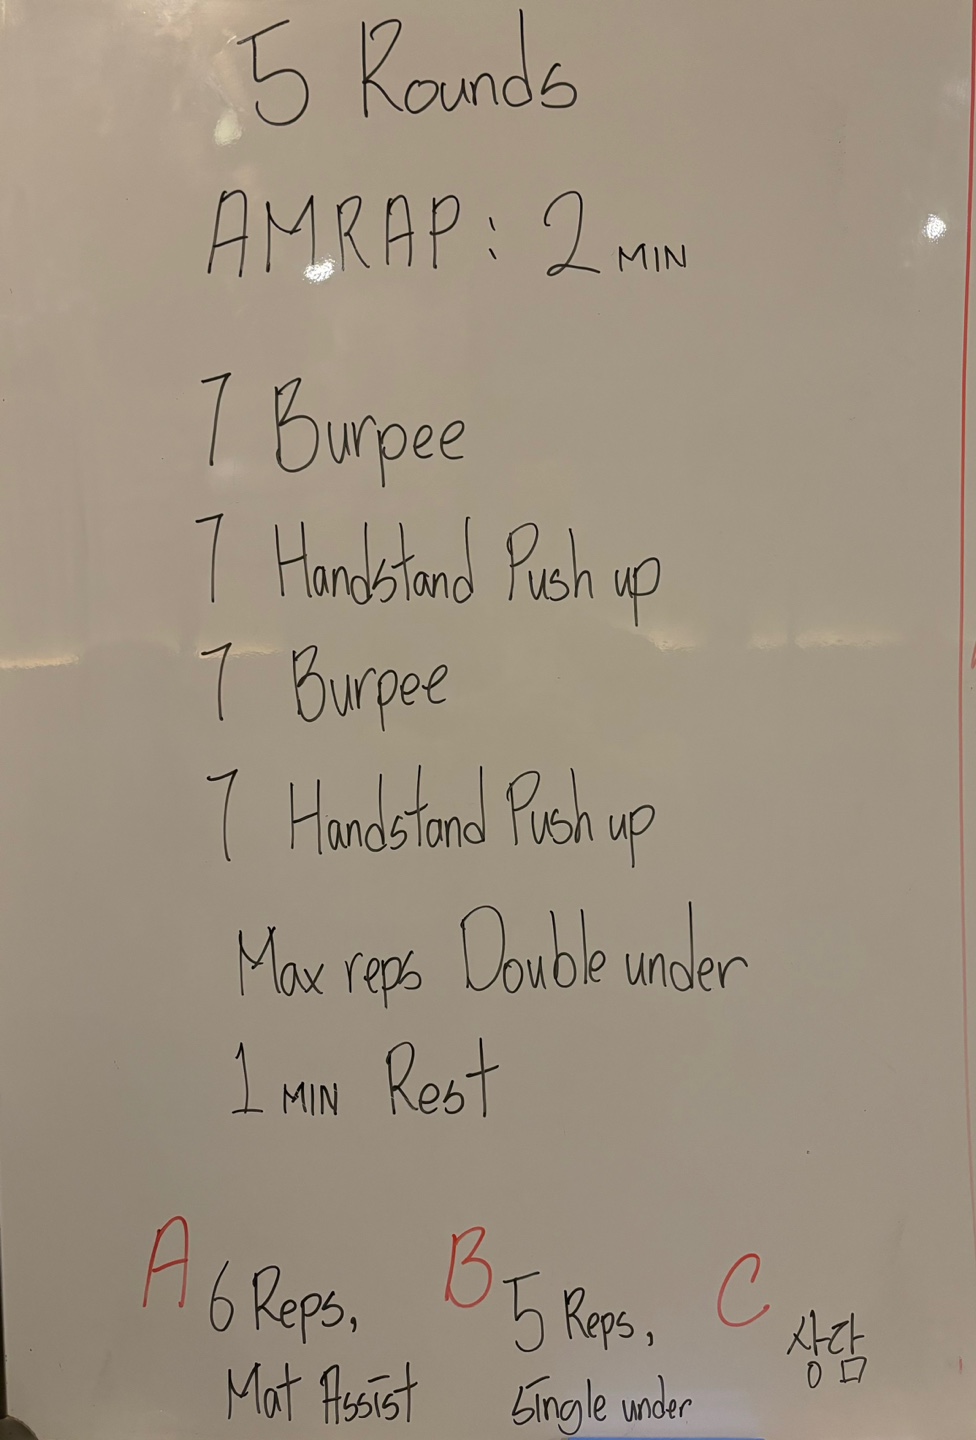 5 Rounds
AMRAP: 2 MIN
7 Burpee
7 Handstand Push up
7 Burpee
7 Handstand Push up
Max reps Double under
1 MIN Rest
A 6 Reps,
Mat Assist
B 5 Reps,
single under
C 상담